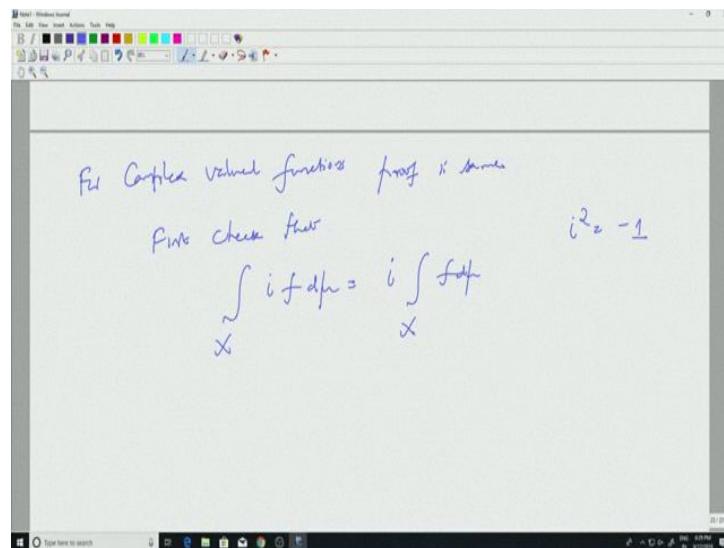 Note1 - Windows Journal
File Edit View Insert Actions Tools Help
For Complex valued functions proof is same
First check that
i² = -1
∫ i f dμ = i ∫ f dμ
X X
Type here to search
ENG